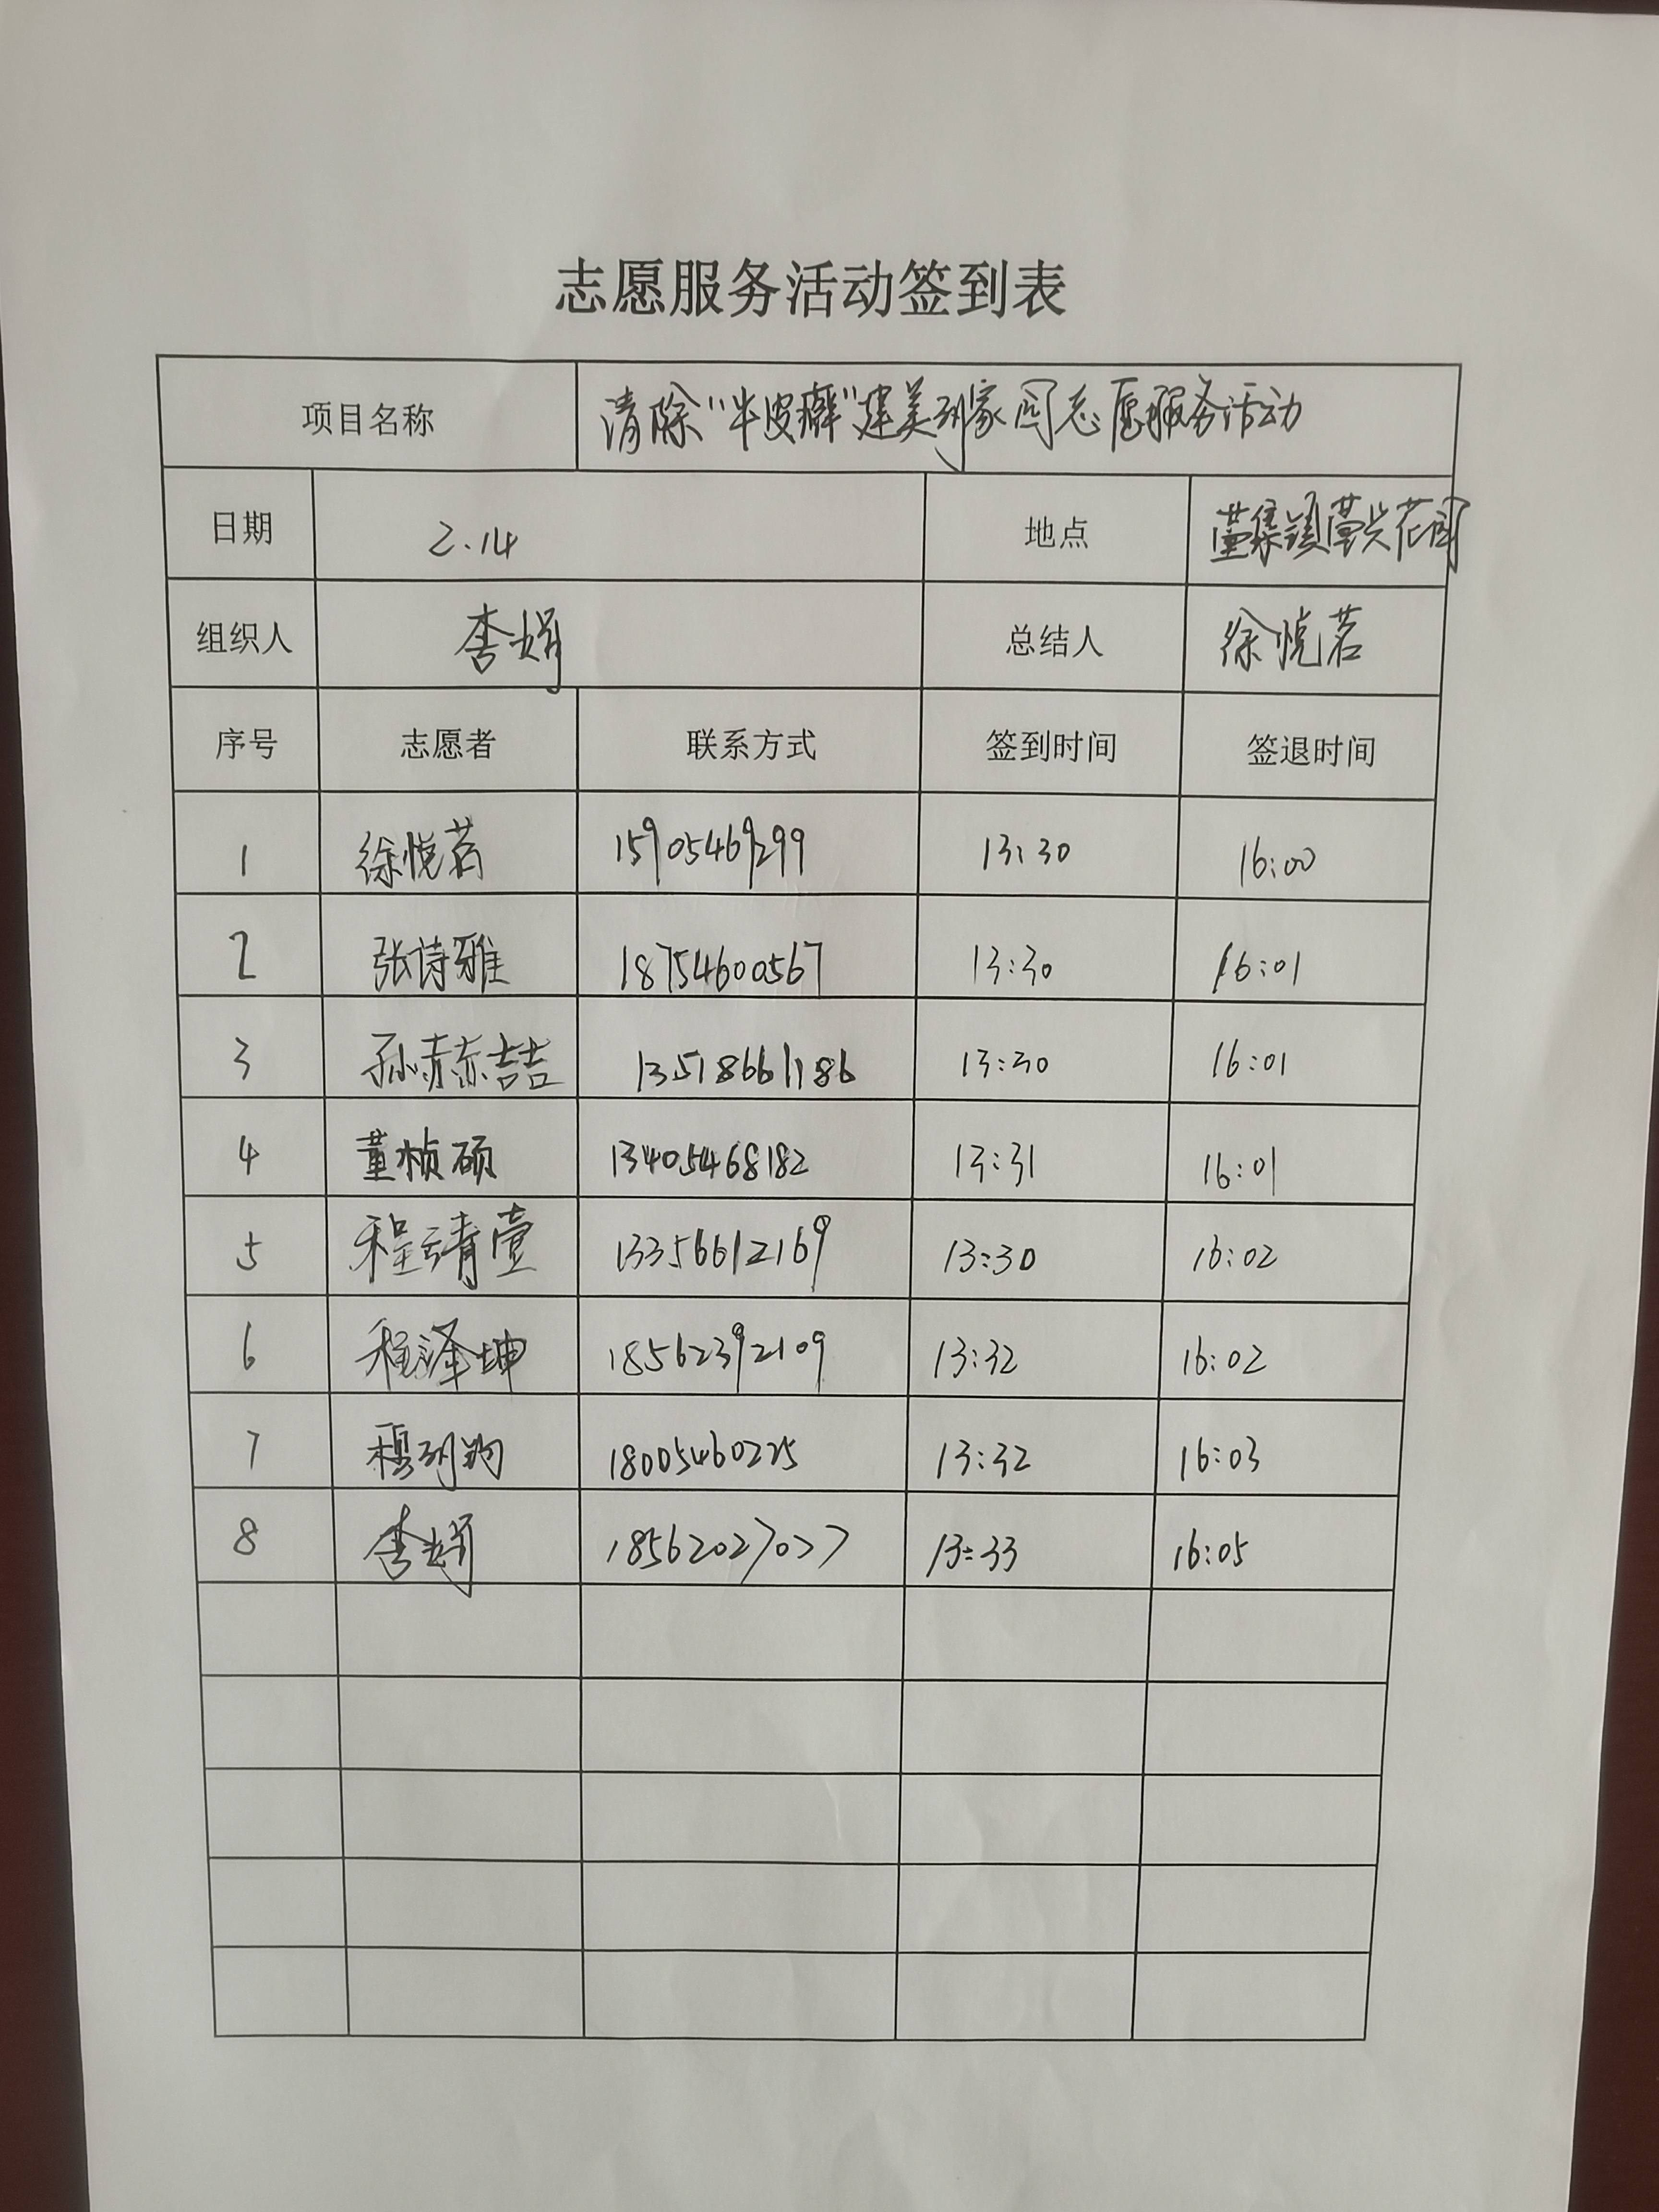 志愿服务活动签到表
项目名称 清除“牛皮癣”建美丽家园志愿服务活动
日期 2.14 地点 董集镇董兴花园
组织人 李娟 总结人 徐悦茗
序号 志愿者 联系方式 签到时间 签退时间
1 徐悦茗 15905469299 13:30 16:00
2 张诗雅 18754600567 13:30 16:01
3 孙赫喆 13518661186 13:30 16:01
4 董桢硕 13405468182 13:31 16:01
5 程靖壹 13356612169 13:30 16:02
6 程泽坤 18562392109 13:32 16:02
7 18005460225 13:32 16:03
8 李娟 18562027027 13:33 16:05